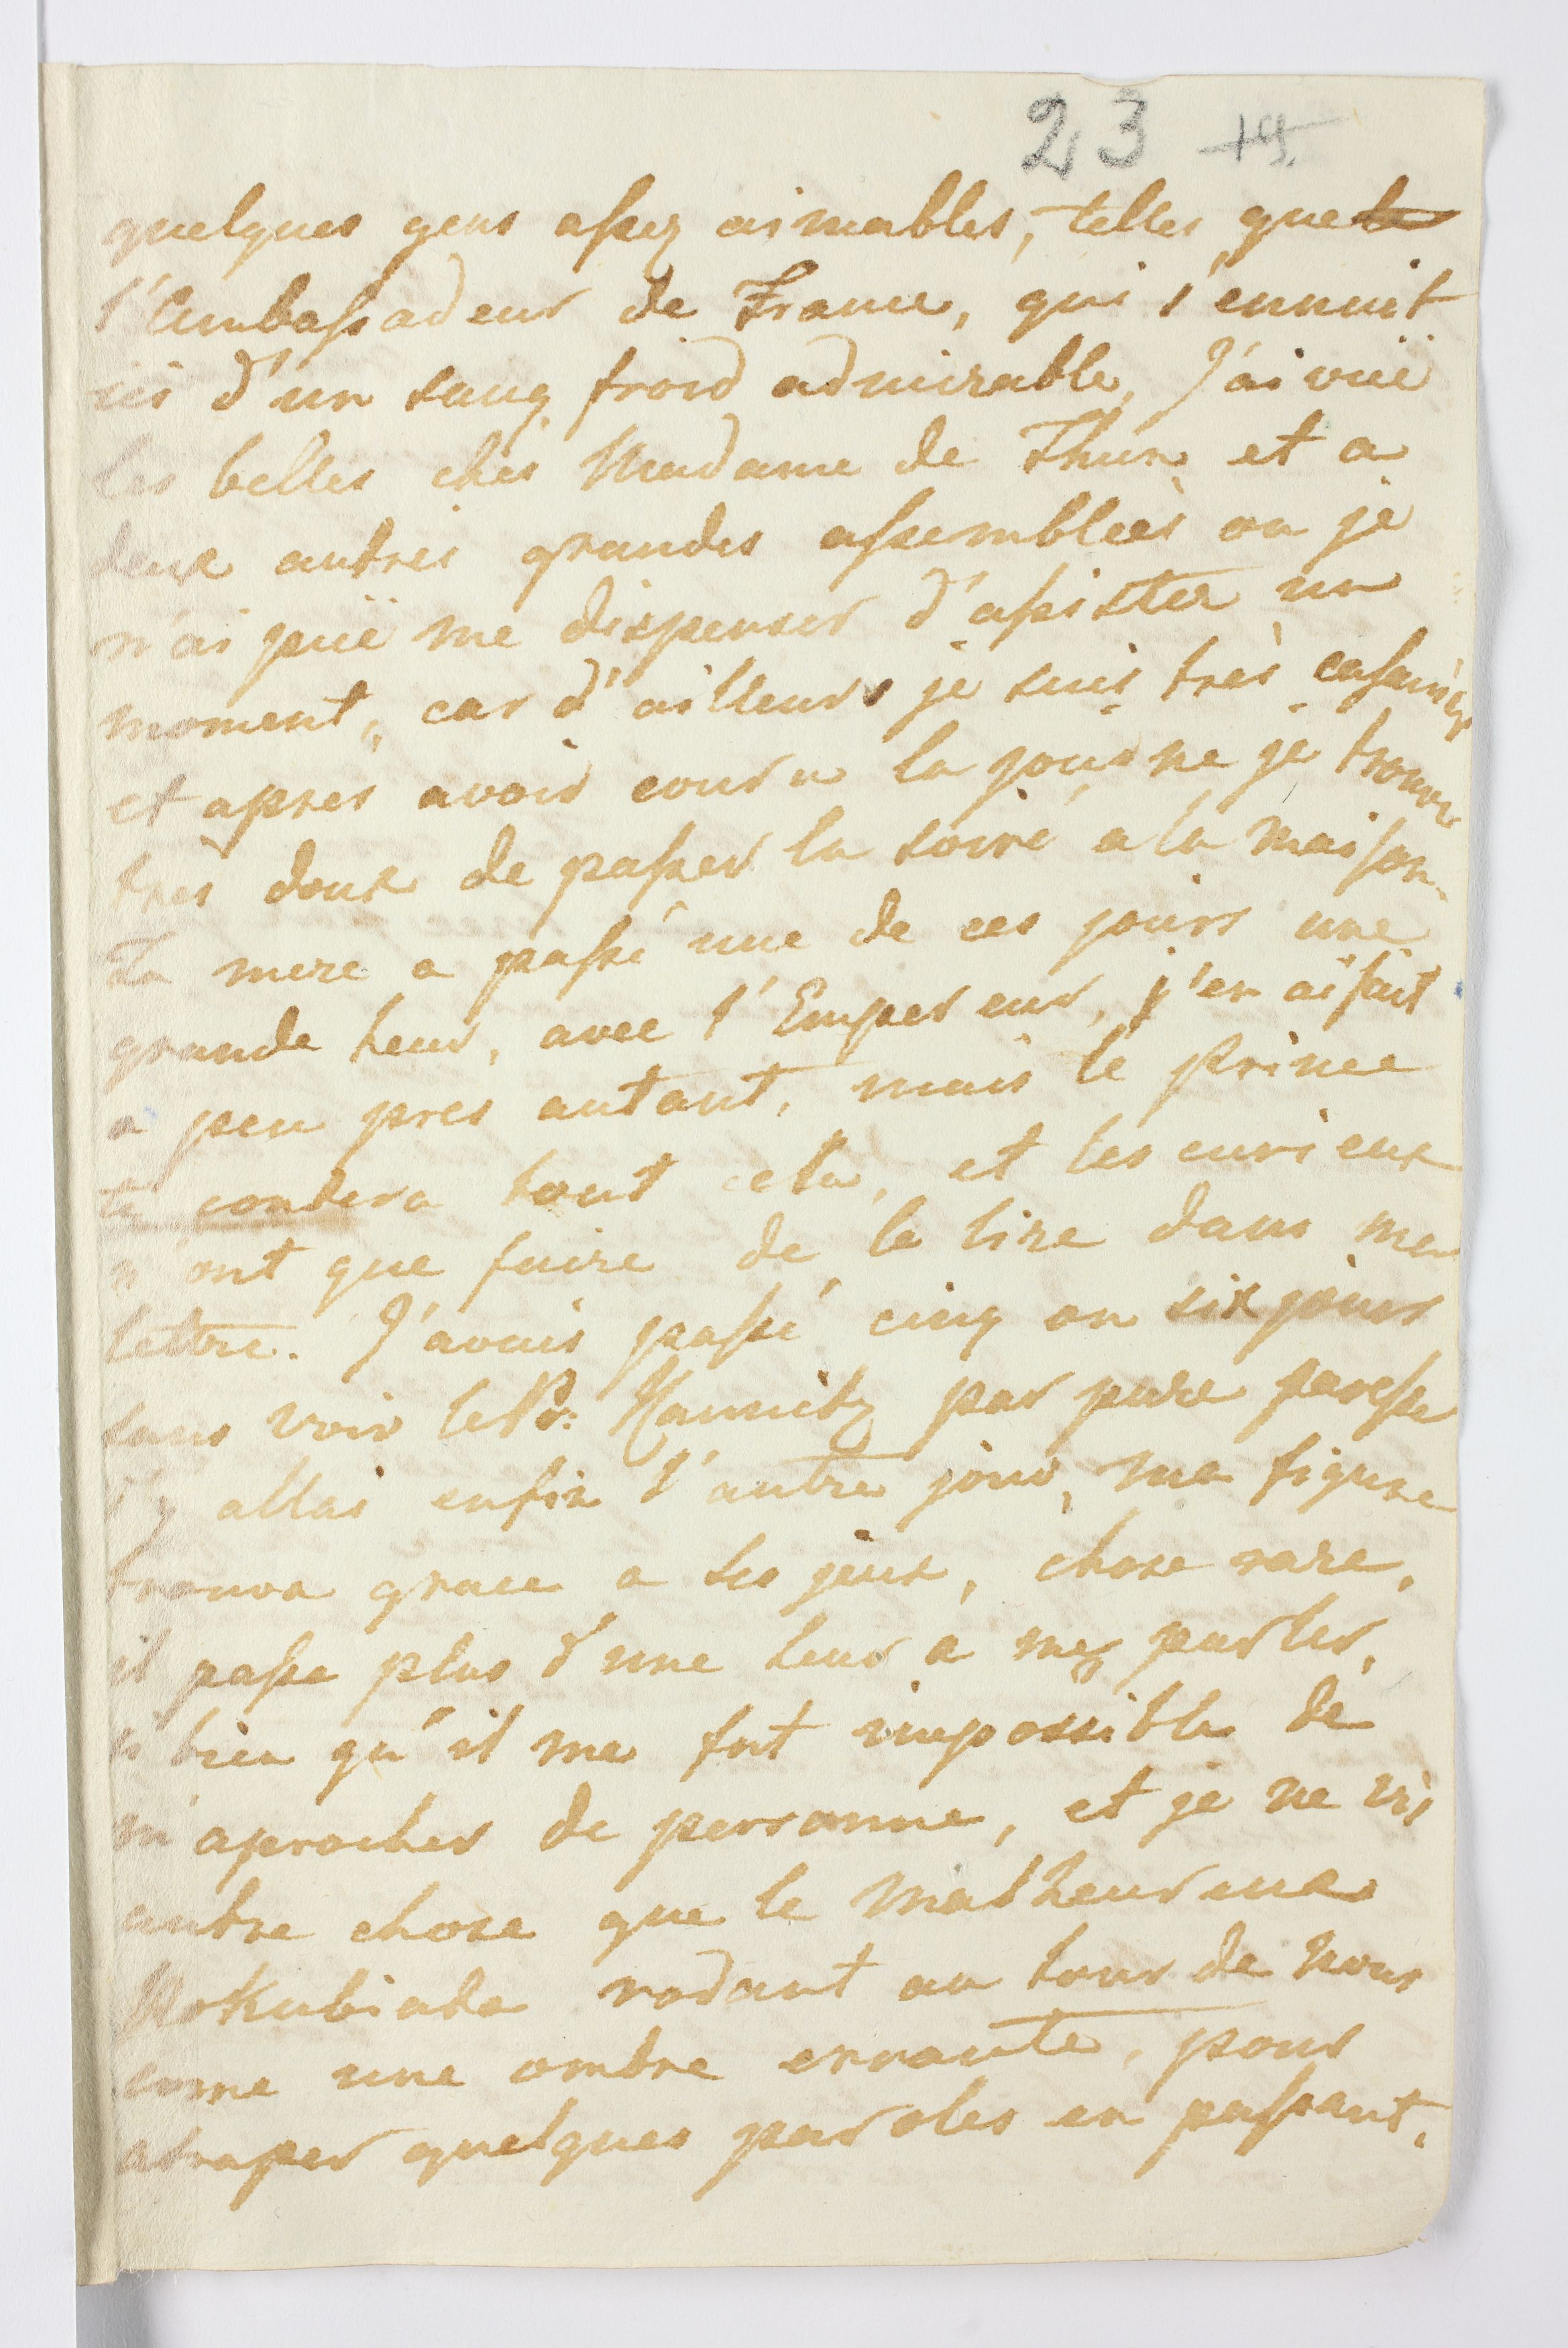 23
quelques gens assez aimables, telles que
l'Ambassadeur de France, qui s'ennuit
ici d'un sang froid admirable, J'ai vuë
les belles chés Madame de Thun et a
deux autres grandes assemblées ou je
n'ai puë me dispenser d'assister un
moment, car d'ailleurs je suis très casaniere
et aprés avoir couru la journe je trouve
très doux de passer la soiré a la maison.
Ta mere a passé une de ces jours une
grande heur, avec l'Empereur, j'en ai fait
a peu pres autant, mais le prince
te contera tout cela, et les curieux
n'ont que faire de le lire dans ma
lettre. J'avais passé cinq ou six jours
sans voir le Pr: Kaunitz par pure paresse
j'y allai enfin l'autre jour, ma figure
trouva grace a ses jeux, chose rare,
il passa plus d'une heur a me parler,
si bien qu'il me fut impossible de
m'aprocher de personne, et je ne vis
autre chose que le malheureux
Kokubiada rodant au tour de nous
come une ombre errante, pour
atraper quelques paroles en passant.